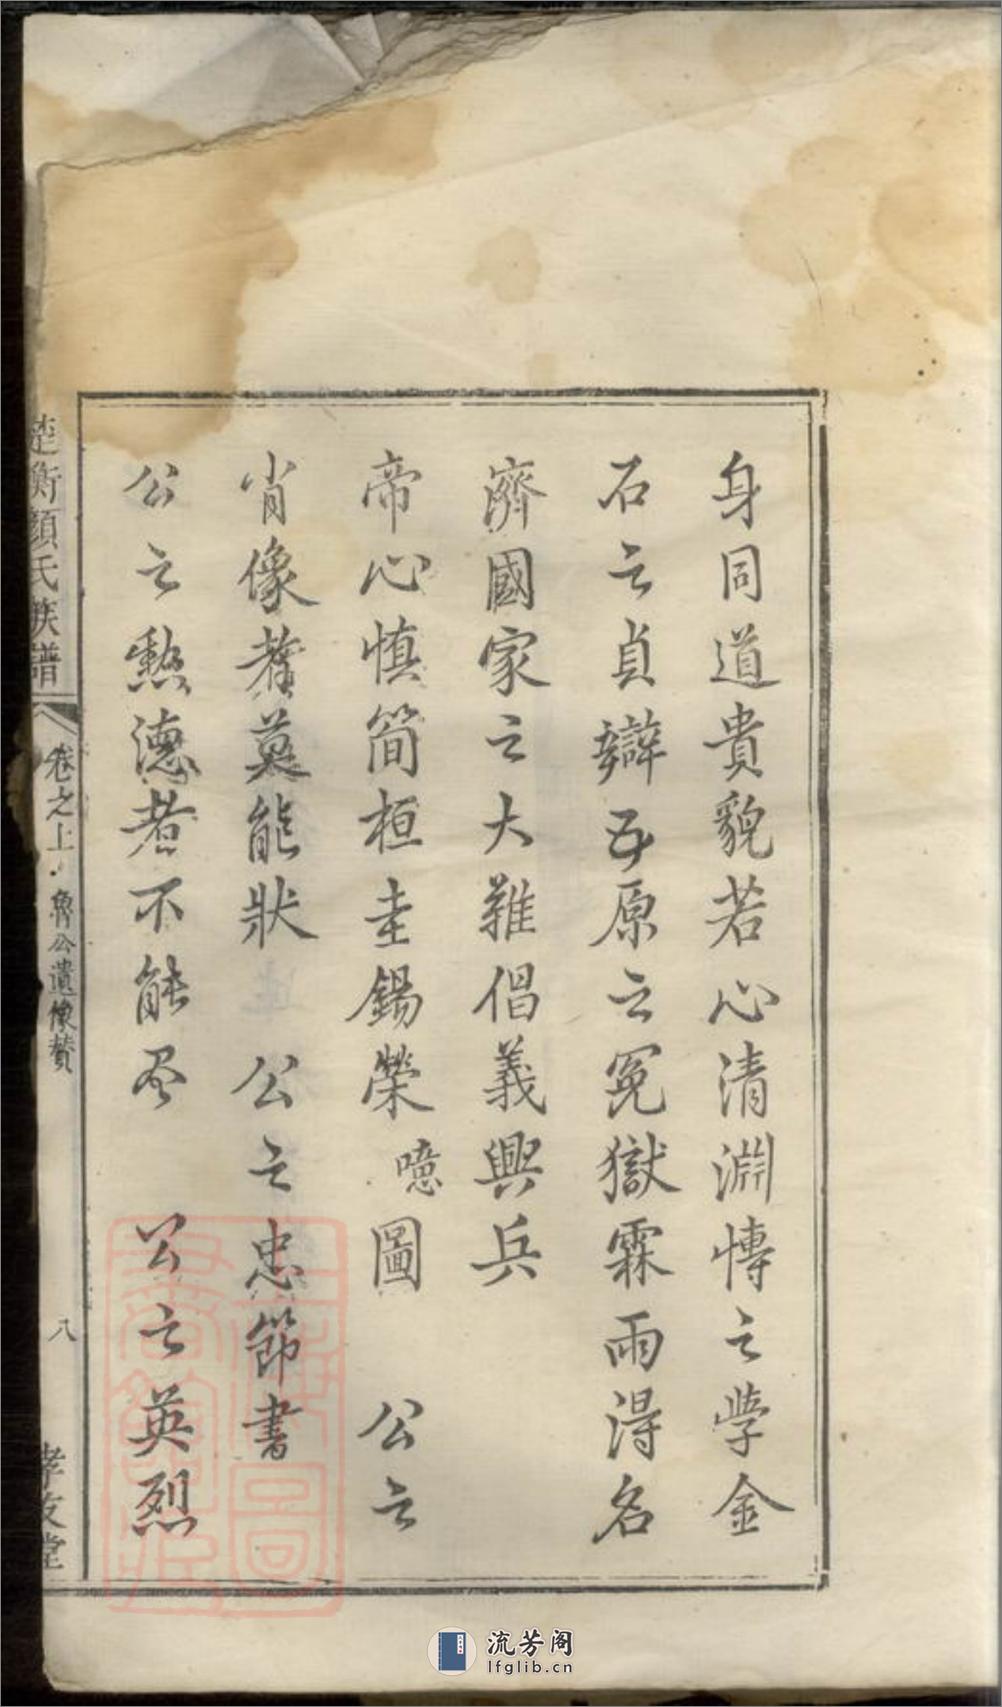 身同道貴貌若心清淵慱之學金
石之貞辯五原之冤獄霖雨淂名
濟國家之大難倡義興兵
帝心慎簡桓圭錫榮噫圖　公之
肖像者莫能狀　公之忠節書
公之勲德者不能盡　公之英烈
楚衡顏氏族譜
卷之上
魯公遺像贊
八
孝友堂
流芳阁
lfglib.cn